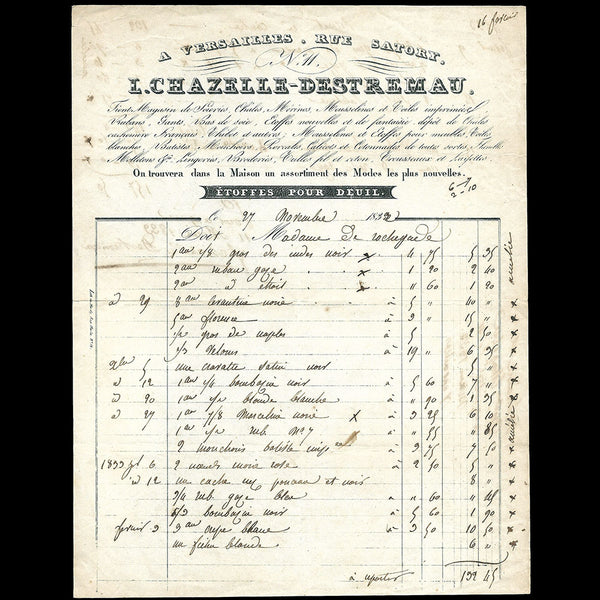 16 fevrier
A VERSAILLES, RUE SATORY,
N. 11.
L. CHAZELLE-DESTREMAU.
Tient Magasin de Soieries, Châles, Mérinos, Mousselines et Voiles imprimées,
Rubans, Gants, Bas de soie, Etoffes nouvelles et de fantaisie, dépôt de Châles
cachemire Français, Thibet et autres; Mousselines et Etoffes pour meubles, Voiles
blanches, Batistes, Mouchoirs, Percales, Calicots et Cotonnades de toutes sortes, Flanelle
Molletons &c Lingeries, Broderies, Tulles fil et coton, Trousseaux et Layettes.
On trouvera dans la Maison un assortiment des Modes les plus nouvelles.
2-10
ÉTOFFES POUR DEUIL.
Le 27 Novembre 1832
Doit Madame de rochegude
1 au 7/8 gros des indes noir x 4 75 5 35
2 au ruban gaze x 1 20 2 40
2 au d étroit x " 60 1 20
d 29 8 au Levantine noire à 5 " 40 "
5 au florence à 3 " 15 "
1/2 gros de naples à 5 " 2 50
1/3 velours à 19 " 6 35
Xbre 5 une cravatte satin noir 5 "
d 12 1 au 1/4 bombasine noir à 5 60 7 "
d 20 1 au 1/2 blonde blanche à " 90 1 35
d 27 1 au 7/8 Marceline noire x à 3 25 6 10
1 au 1/2 rub. No 7 x à " 55 " 85
2 mouchoirs batiste à 3 75 7 50
1833 6 2 nœuds noire rose à 2 50 5 "
d 12 un cache nez ponceau et noir 8 "
3/4 rub gaze bleu à " 60 " 45
bombasine noir à 5 60 1 90
fevrier 3 3 au crepe blanc à 3 50 10 50
un fichu blonde 6 "
à reporter 139 45